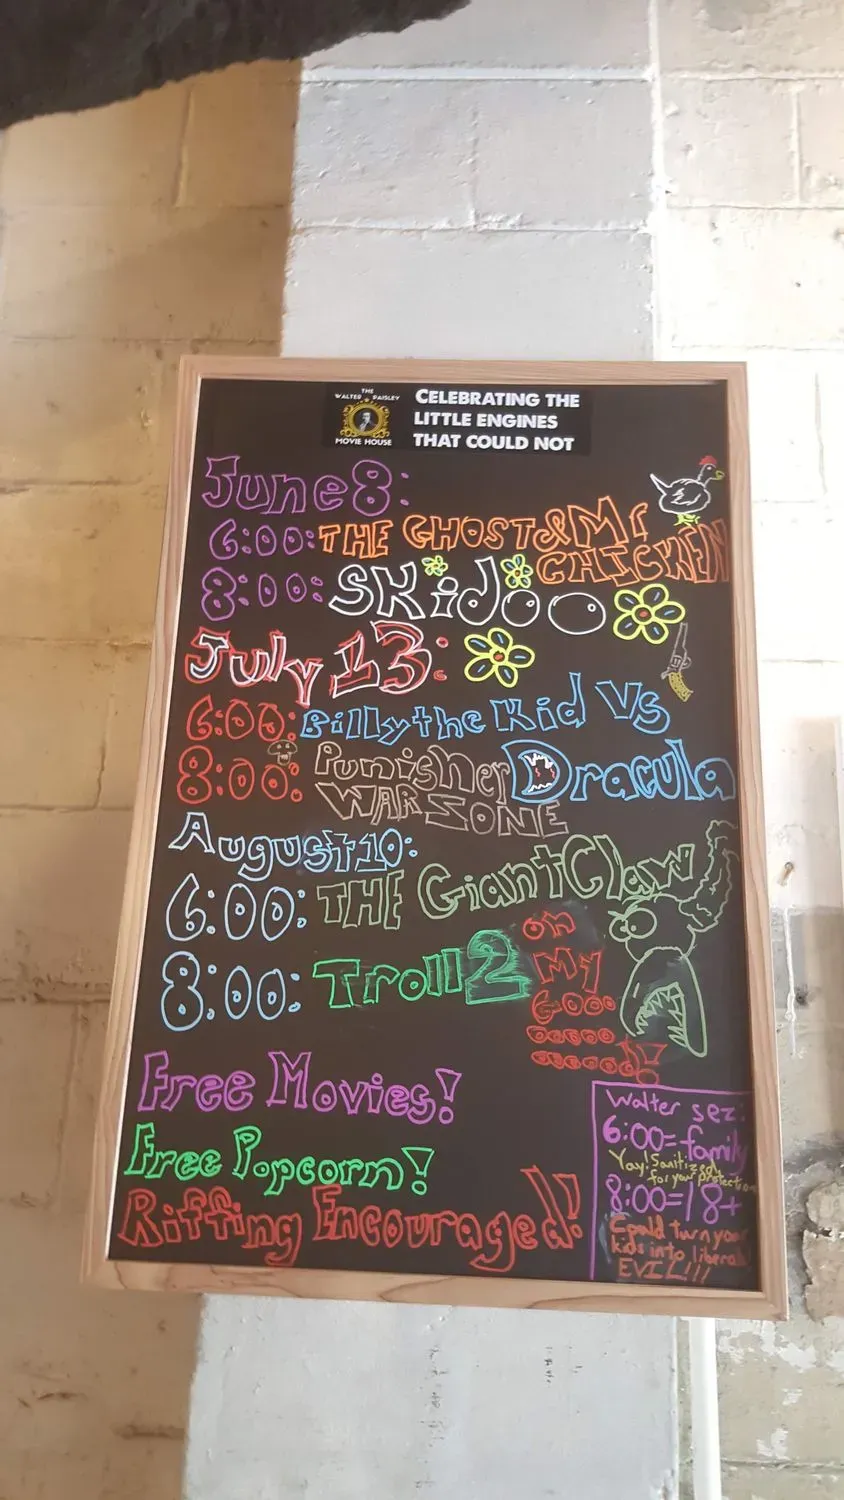 THE
WALTER PAISLEY
MOVIE HOUSE
CELEBRATING THE
LITTLE ENGINES
THAT COULD NOT
June 8:
6:00: THE GHOST & Mr
CHICKEN
8:00: SKidoo
July 13:
6:00: Billy the Kid Vs
Dracula
8:00: Punisher
WAR ZONE
August 10:
6:00: THE Giant Claw
8:00: Troll 2
oh
My
Gooo
ooooo
ooooood!!
Free Movies!
Free Popcorn!
Riffing Encouraged!!
Walter sez:
6:00=family
Yay! Sanitized
for your protection
8:00=18+
Could turn your
kids into liberals
EVIL!!!